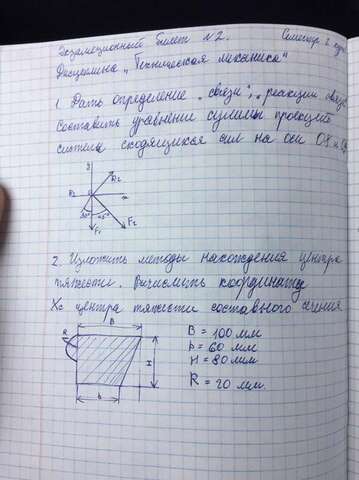 Экзаменационный билет N2.
Семестр 2
Дисциплина "Техническая механика"
1. Дать определение "связи", "реакции связи"
Составить уравнении суммы проекций
системы сходящихся сил на оси OX и
y
R2
x
F1
F2
2. Изложить методы нахождения центра
тяжести. Вычислить координату
Xc центра тяжести составного сечения
B
B = 100 мм
R
b = 60 мм
H
H = 80 мм
R = 20 мм.
b